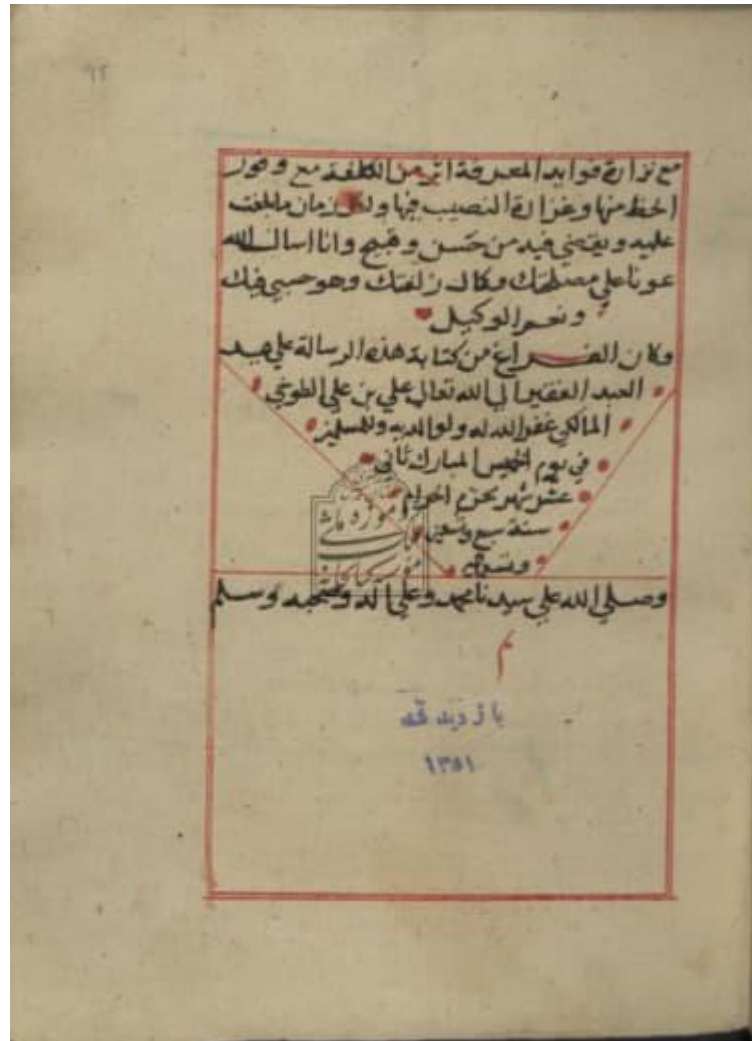 ٩٢
مع نزارة فوايد المعرفة اثر من الكلفة مع وفور
الحظ منها وغزارة النصيب فيها ولكل زمان ما يلغت
عليه ويقتضي فيه من حسن وقبيح وانا اسال الله
عونا علي مصلحتك وكالد زلفتك وهو حسبي فيك
ونعم الوكيل
وكان الفراغ من كتابة هذه الرسالة علي يد
العبد الفقير الي الله تعالي علي بن علي الطوخي
المالكي غفر الله له ولوالديه وللمسلمين
في يوم الخميس المبارك ثاني
عشر شهر محرم الحرام
سنة سبع وتسعين
وتسعمايه
وصلي الله علي سيدنا محمد وعلي اله وصحبه وسلم
م
بازدید شد
١٣٥١